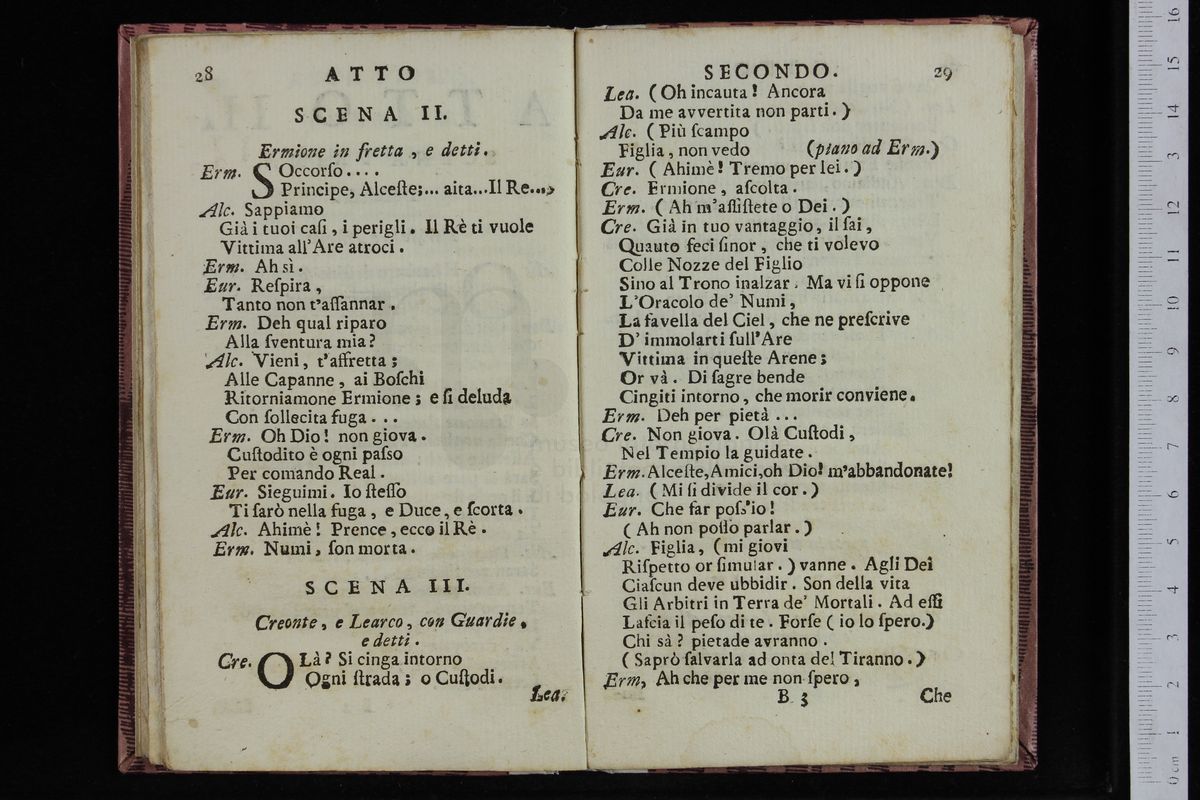 28
ATTO
SCENA II.
Ermione in fretta , e detti.
Erm. SOccorſo....
Principe, Alceſte;... aita...Il Re....,
Alc. Sappiamo
Già i tuoi caſi , i perigli. Il Rè ti vuole
Vittima all'Are atroci.
Erm. Ah sì.
Eur. Reſpira ,
Tanto non t'aſſannar .
Erm. Deh qual riparo
Alla ſventura mia?
Alc. Vieni, t'affretta ;
Alle Capanne , ai Boſchi
Ritorniamone Ermione ; e ſi deluda
Con ſollecita fuga . . .
Erm. Oh Dio! non giova.
Cuſtodito è ogni paſso
Per comando Real.
Eur. Sieguimi. Io ſteſſo
Ti ſarò nella fuga , e Duce, e ſcorta .
Alc. Ahimè! Prence , ecco il Rè .
Erm. Numi, ſon morta .
SCENA III.
Creonte, e Learco, con Guardie,
e detti.
Cre. OLà? Si cinga intorno
Ogni ſtrada ; o Cuſtodi.
Lea.
SECONDO.
29
Lea. (Oh incauta! Ancora
Da me avvertita non parti.)
Alc. (Più ſcampo
Figlia, non vedo (piano ad Erm.)
Eur. ( Ahimè! Tremo per lei.)
Cre. Ermione , aſcolta .
Erm. ( Ah m'aſſiſtete o Dei . )
Cre. Già in tuo vantaggio, il ſai,
Quauto feci ſinor , che ti volevo
Colle Nozze del Figlio
Sino al Trono inalzar. Ma vi ſi oppone
L'Oracolo de' Numi,
La favella del Ciel, che ne preſcrive
D' immolarti ſull'Are
Vittima in queſte Arene;
Or và . Di ſagre bende
Cingiti intorno, che morir conviene.
Erm. Deh per pietà ...
Cre. Non giova. Olà Cuſtodi,
Nel Tempio la guidate .
Erm. Alceſte, Amici, oh Dio! m'abbandonate!
Lea. (Mi ſi divide il cor.)
Eur. Che far poſs'io!
( Ah non poſſo parlar.)
Alc. Figlia, (mi giovi
Riſpetto or ſimular. ) vanne . Agli Dei
Ciaſcun deve ubbidir . Son della vita
Gli Arbitri in Terra de' Mortali. Ad eſſi
Laſcia il peſo di te. Forſe ( io lo ſpero.)
Chi sà ? pietade avranno .
( Saprò ſalvarla ad onta del Tiranno.)
Erm, Ah che per me non ſpero ,
B 3
Che